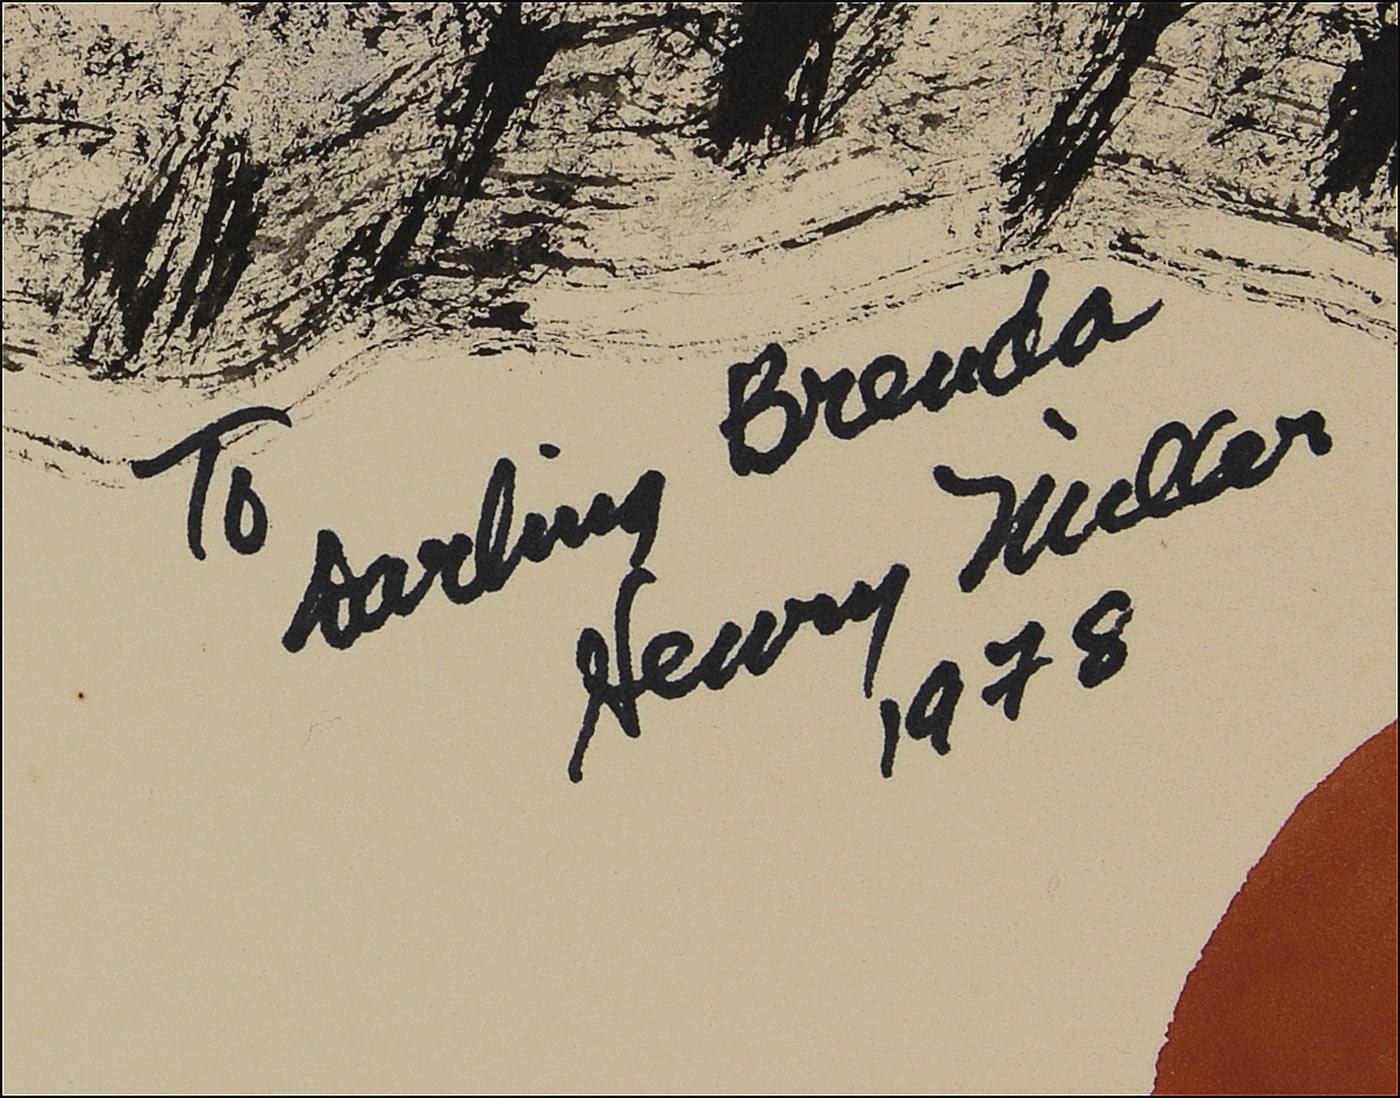 To Darling Brenda
Henry Miller
1978